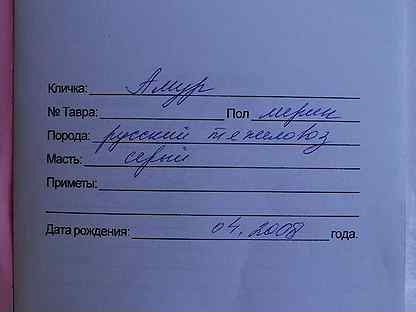 Кличка: Амур
№ Тавра: Пол мерин
Порода: русский тяжеловоз
Масть: серый
Приметы:
Дата рождения: 04. 2008 года.